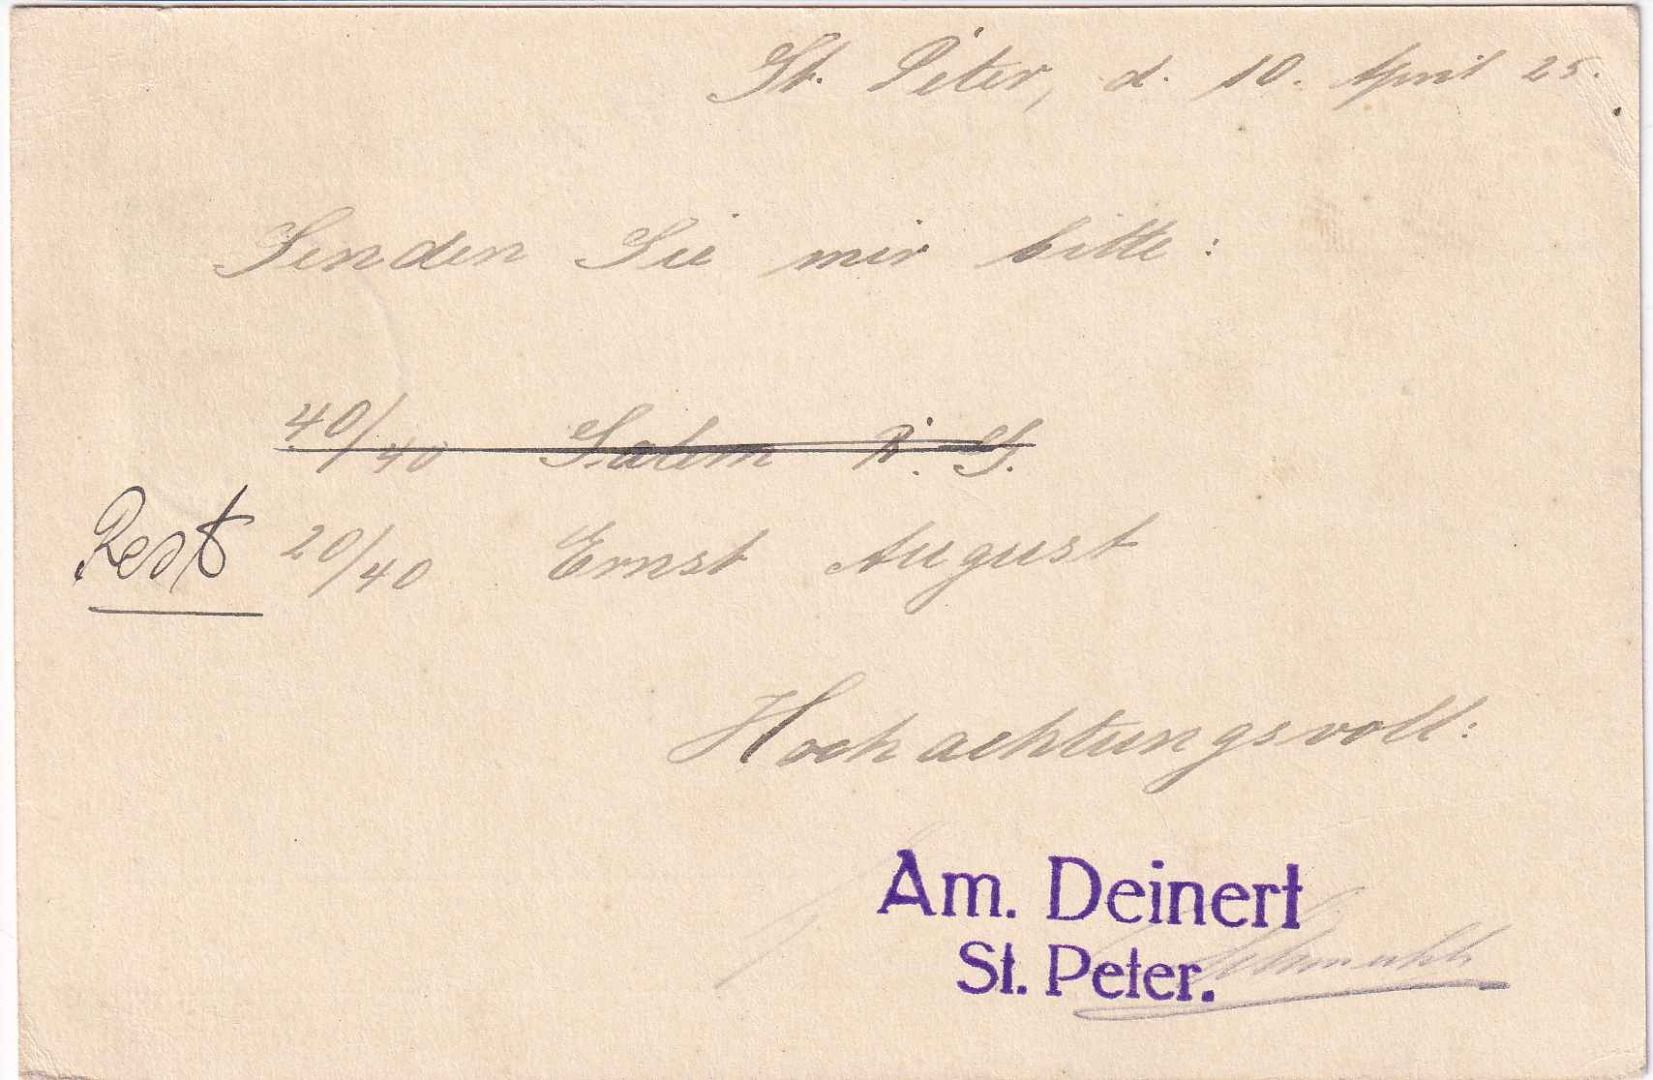 St. Peter, d. 10. April 25.
Senden Sie mir bitte:
40/40 Salem R. G.
Rest 20/40 Ernst August
Hochachtungsvoll:
Am. Deinert
St. Peter.